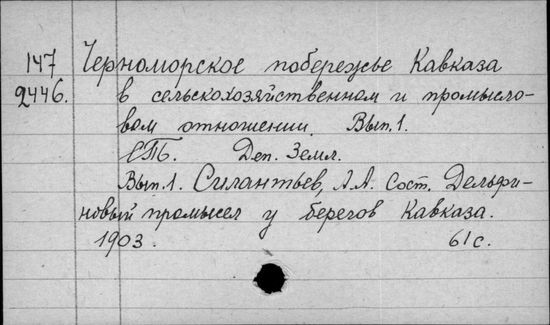 147 Черноморское побережье Кавказа
2446. в сельскохозяйственном и промысло-
вом отношении. Вып. 1.
СПб. Деп. Земл.
Вып. 1. Силантьев, А.А. Сост. Дельфи-
новый промысел у берегов Кавказа.
1903. 61 с.